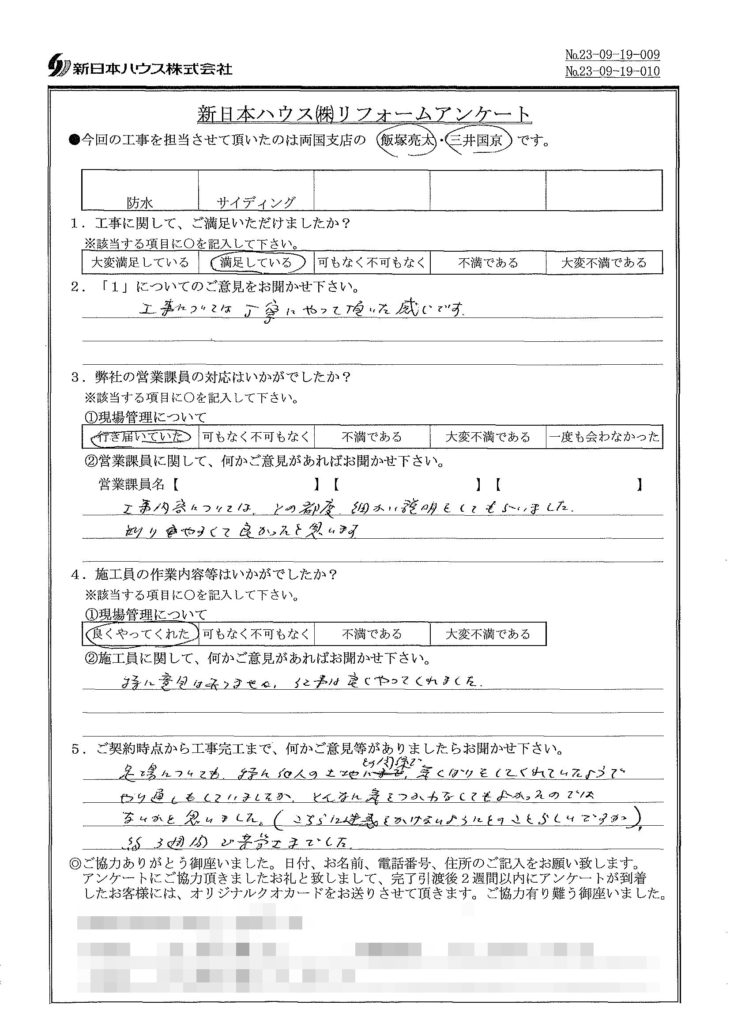 新日本ハウス株式会社
No.23-09-19-009
No.23-09-19-010
新日本ハウス㈱リフォームアンケート
●今回の工事を担当させて頂いたのは両国支店の 飯塚亮太・三井国京 です。
防水 サイディング
1．工事に関して、ご満足いただけましたか？
※該当する項目に○を記入して下さい。
大変満足している 満足している 可もなく不可もなく 不満である 大変不満である
2．「1」についてのご意見をお聞かせ下さい。
工事については丁寧にやって頂いた感じです.
3．弊社の営業課員の対応はいかがでしたか？
※該当する項目に○を記入して下さい。
①現場管理について
行き届いていた 可もなく不可もなく 不満である 大変不満である 一度も会わなかった
②営業課員に関して、何かご意見があればお聞かせ下さい。
営業課員名【 】【 】【 】
工事内容については、その都度 細かい説明をしてもらいました.
判りやすくて良かったと思います
4．施工員の作業内容等はいかがでしたか？
※該当する項目に○を記入して下さい。
①現場管理について
良くやってくれた 可もなく不可もなく 不満である 大変不満である
②施工員に関して、何かご意見があればお聞かせ下さい。
特に意見はありません、仕事は良くやってくれました.
5．ご契約時点から工事完工まで、何かご意見等がありましたらお聞かせ下さい。
との関係で
足場についても、特に他人の土地 気くばりをしてくれていたようで
やり直しもしていましたが、そんなに気をつかわなくてもよかったのでは
ないかと思いました。(こちらに迷惑をかけないようにとのことらしいですが),
約3週間で完了しました.
◎ご協力ありがとう御座いました。日付、お名前、電話番号、住所のご記入をお願い致します。
アンケートにご協力頂きましたお礼と致しまして、完了引渡後2週間以内にアンケートが到着
したお客様には、オリジナルクオカードをお送りさせて頂きます。ご協力有り難う御座いました。